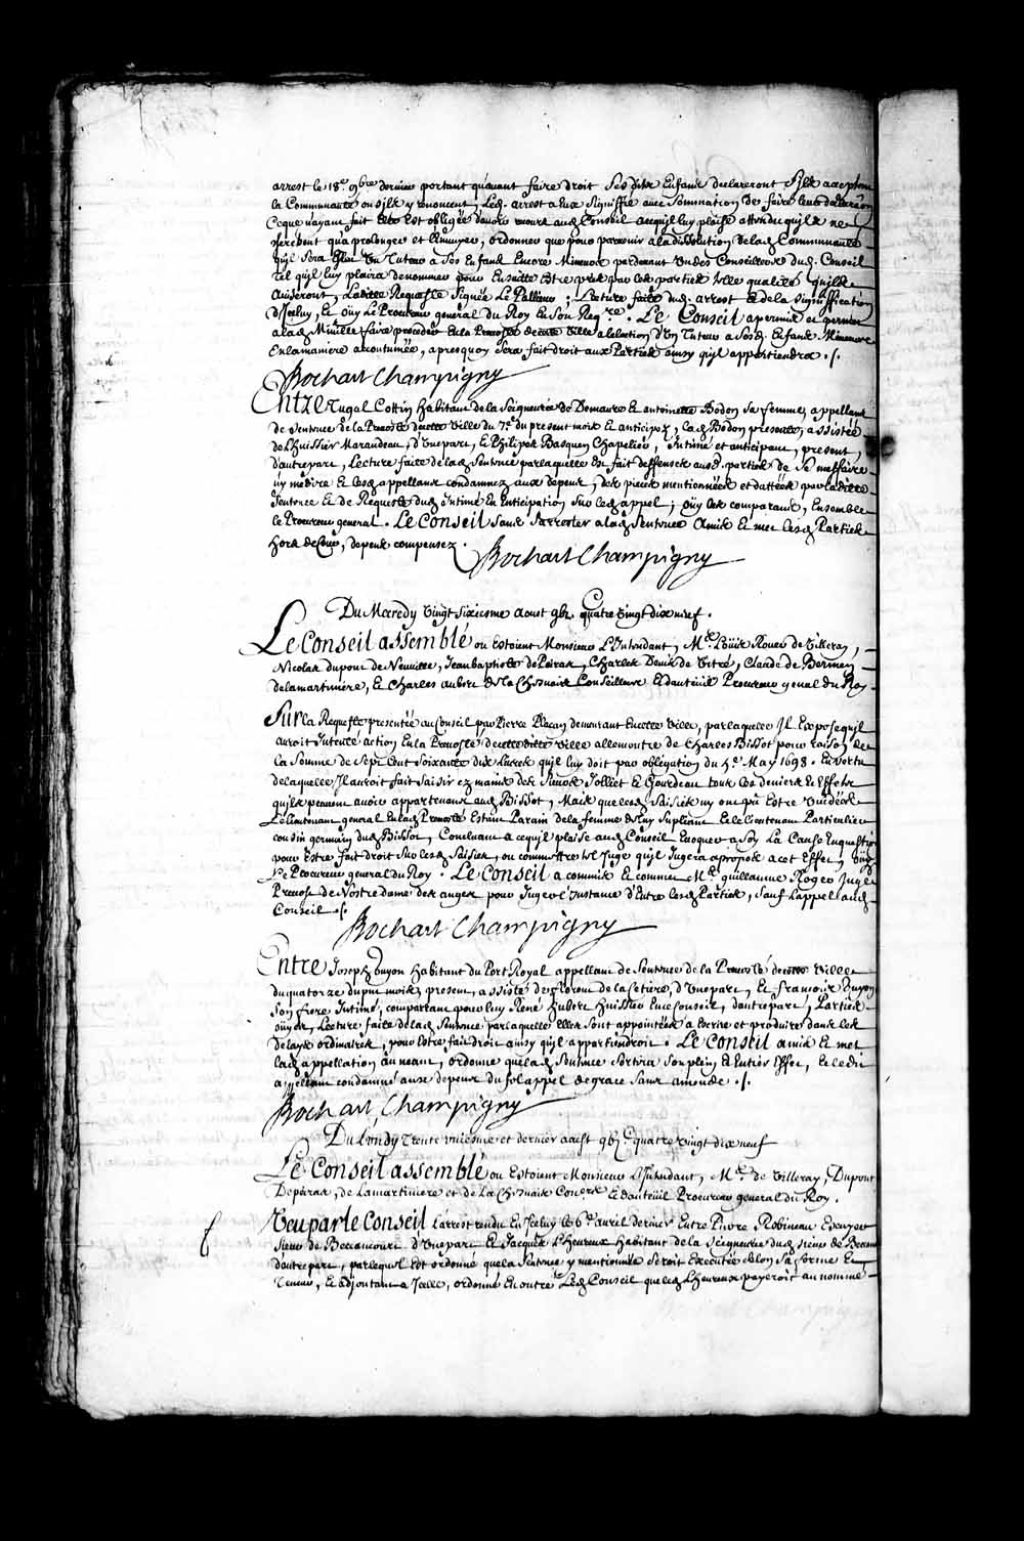 arrest le 18.e 9bre dernier portant qu'avant faire droit Sesdits Enfans declareront s'ils acceptent
la Communauté ou s'ils y renoncent, Led. arrest a Eux signiffié avec Sommation de faire leur declaraon
Ceque n'ayant fait Elle Est obligée d'avoir recours aud. Conseil acequ'il luy plaise attendu qu'ils ne
cherchent qua prolonger et Ennuyer, ordonner que pour parvenir a la dissolution delad. Communauté
qu'il sera Esleu un Tuteur a Ses Enfans Encore Mineurs pardevant un des Conseillers dud. Conseil
tel qu'il luy plaira denommer pour Ensuitte Estre pris par les parties telle qualité quils
aviseront, Laditte Requeste signée Le Pallieur; Lecture faitte dud. arrest Et de la signiffication
d'Iceluy, Et ouy Le Procureur general du Roy En son Reqre. Le Conseil a permis et permet
a lad. Mirville faire proceder En la Prevosté de cette ville a lelection d'un Tuteur a Sesd. Enfans Mineurs
En la maniere accoutumée, apresquoy sera fait droit aux Parties ainsy qu'il appartiendra ./.
Bochart Champigny
Entre Jugal Cottin habitant de la Seigneurie de Demaure Et antoinette Bodon sa femme, appellans
de Sentence de la Prevosté de cette Ville du 7.e du present mois Et anticipez, Lad. Bodon presente, assistée
de L'huissier Marandeau, d'Unepart, Et Philipes Basquin Chapelier, Intimé et anticipant, present,
d'autrepart, Lecture faite de lad. Sentence par laquelle Est fait deffenses ausd. parties de se meffaire
ny médire Et lesd. appellans condamnez aux depens, des pieces mentionnées et dattées par laditte
Sentence Et de Requeste dud. Intimé En Anticipation sur led. appel; ouy les comparans, Ensemble
le Procureur general. Le Conseil sans s'arrester a lad. Sentence a mis Et met lesd. Parties
hors de Cour, depens compensez.
Bochart Champigny
Du Mecredy vingt sixiesme aoust gbi. quatre vingt dix neuf.
Le Conseil assemblé ou Estoient Monsieur L'Intendant, M.e Loüis Rouer de Villeray,
Nicolas dupont de Neuville, Jean baptiste de Peiras, Charles Denis de Vitré, Claude de Bermen
delamartiniere, Et Charles aubert de la Chesnaie Conseillers Et dauteüil Procureur general du Roy
Sur la Requeste presentée au Conseil par Pierre Plassan demeurant En cette Ville, par laquelle Il Expose qu'il
auroit Intenté action En la Prevosté de cette ditte ville allencontre de Charles Bissot pour raison de
la Somme de Sept Cent Soixante dix Livres qu'il luy doit par obligation du 5.e May 1698. En vertu
delaquelle Il auroit fait Saisir ez mains des Sieurs Jolliet Et Gourdeau tous les deniers Et Effets
qu'ils peuvent avoir appartenans aud. Bissot, Mais que lesd. Saisies ny ont pû Estre vuidées
le Lieutenant general En lad. Prevosté Estant Parain de la femme deluy Supliant Et le Lieutenant Particulier
cousin germain dud. Bissot, Concluant a cequ'il plaise aud. Conseil Evoquer a Soy La Cause En question
pour Estre fait droit sur lesd. Saisies, ou commettre tel Juge qu'il Jugera apropos a cet Effet, Oüy
Le Procureur general du Roy. Le Conseil a commis Et commet M.e guillaume Roger Juge
Prevost de Nostre dame des anges pour Juger l'Instance d'Entre lesd. Parties, Sauf Lappel aud.
Conseil ./.
Bochart Champigny
Entre Joseph Guyon habitant du Port Royal appellant de Sentence de la Prevosté de cette Ville
du quatorze du pnt. mois, present, assisté de florent de la Cetiere, d'Unepart, Et francois Guyon
Son frere Intimé, comparant pour luy René hubert huissier En ce Conseil, dautrepart; Parties
oüyes, Lecture faite delad. Sentence par laquelle Elles sont appointées a Ecrire et produire dans les
delays ordinaires, pour Estre fait droit ainsy qu'il appartiendroit. Le Conseil a mis Et met
lad. appellation au neant, ordonne que lad. Sentence sortira son plein Et Entier Effet, Et ledit
appellant condamné aux depens du fol appel de grace sans amende ./.
Bochart Champigny
Du Lundy Trente unieme et dernier aoust gbi.c quatre vingt dix neuf
Le Conseil assemblé ou Estoient Monsieur L'Intendant, M.es de Villeray, Dupont
Depeiras, de Lamartiniere et de La Chesnaie Con.ers Et dauteüil Procureur general du Roy.
Veu par le Conseil l'arrest rendu En Iceluy le 6.e avril dernier Entre Pierre Robineau Escuyer
Sieur de Becancourt d'Unepart Et Jacques L'heureux habitant de la Seigneurie dud. sieur de Becancourt
dautrepart, par lequel Est ordonné que la Sentence y mentionnée Seroit Executée selon sa forme Et
Teneur, Et adjoutant a Icelle, ordonne En outre Led. Conseil que led. L'heureux payeroit au nommé